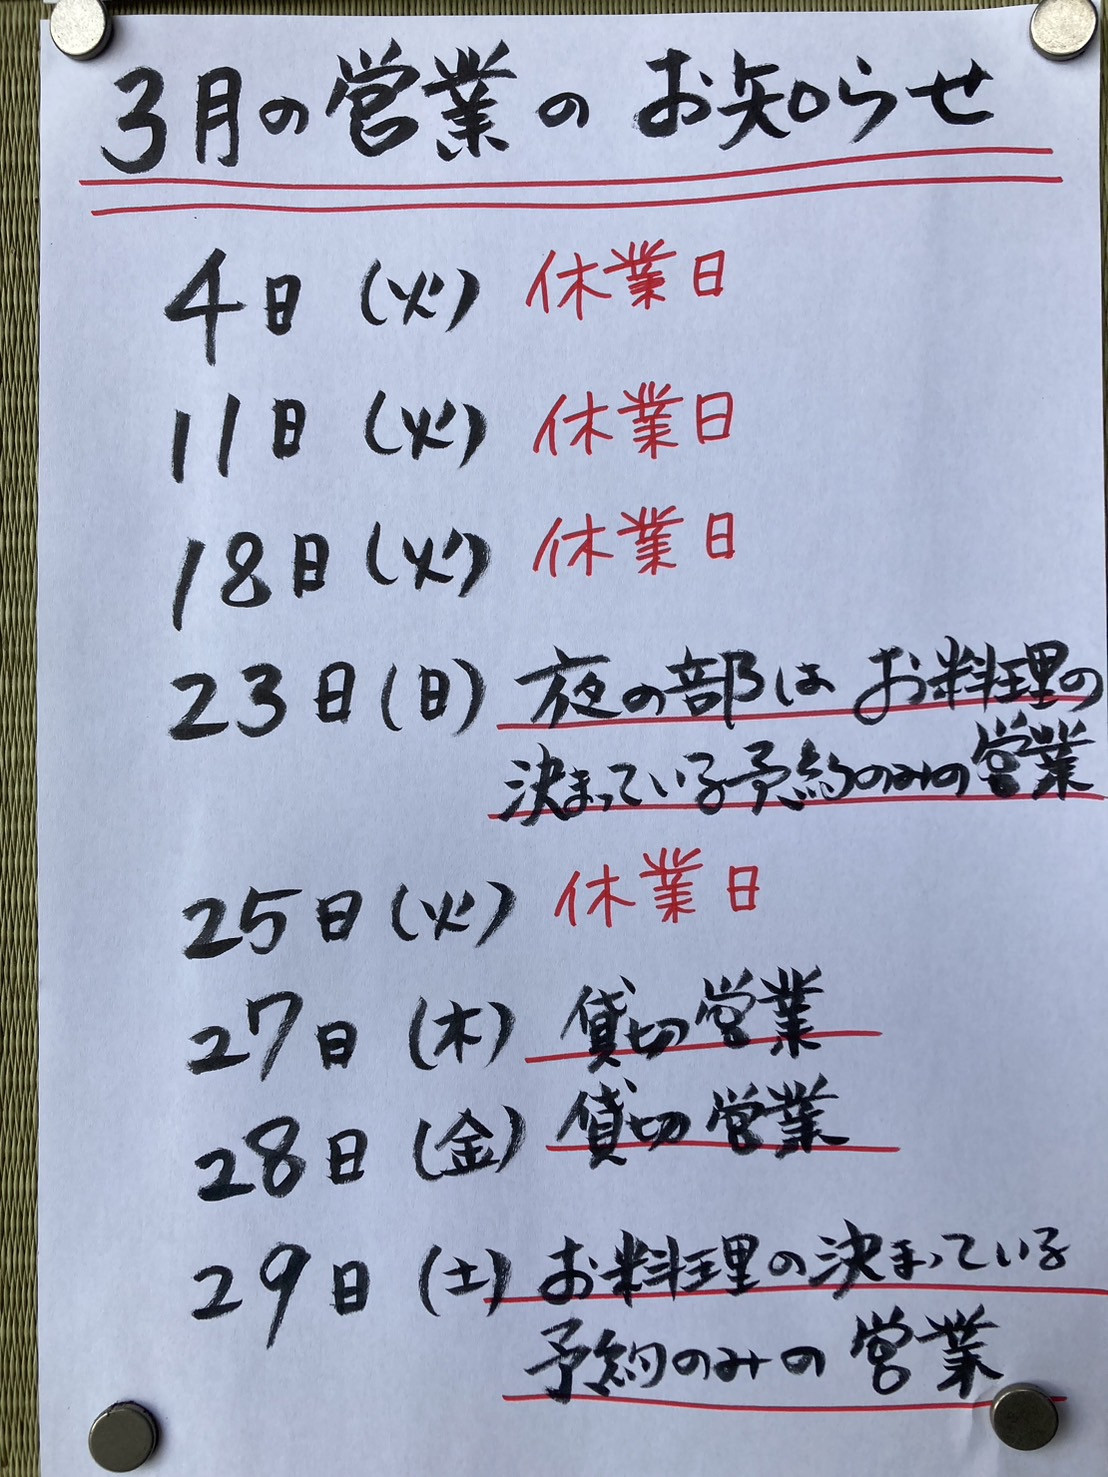 3月の営業のお知らせ
4日(火) 休業日
11日(火) 休業日
18日(火) 休業日
23日(日) 夜の部はお料理の
決まっている予約のみの営業
25日(火) 休業日
27日(木) 貸切営業
28日(金) 貸切営業
29日(土) お料理の決まっている
予約のみの営業